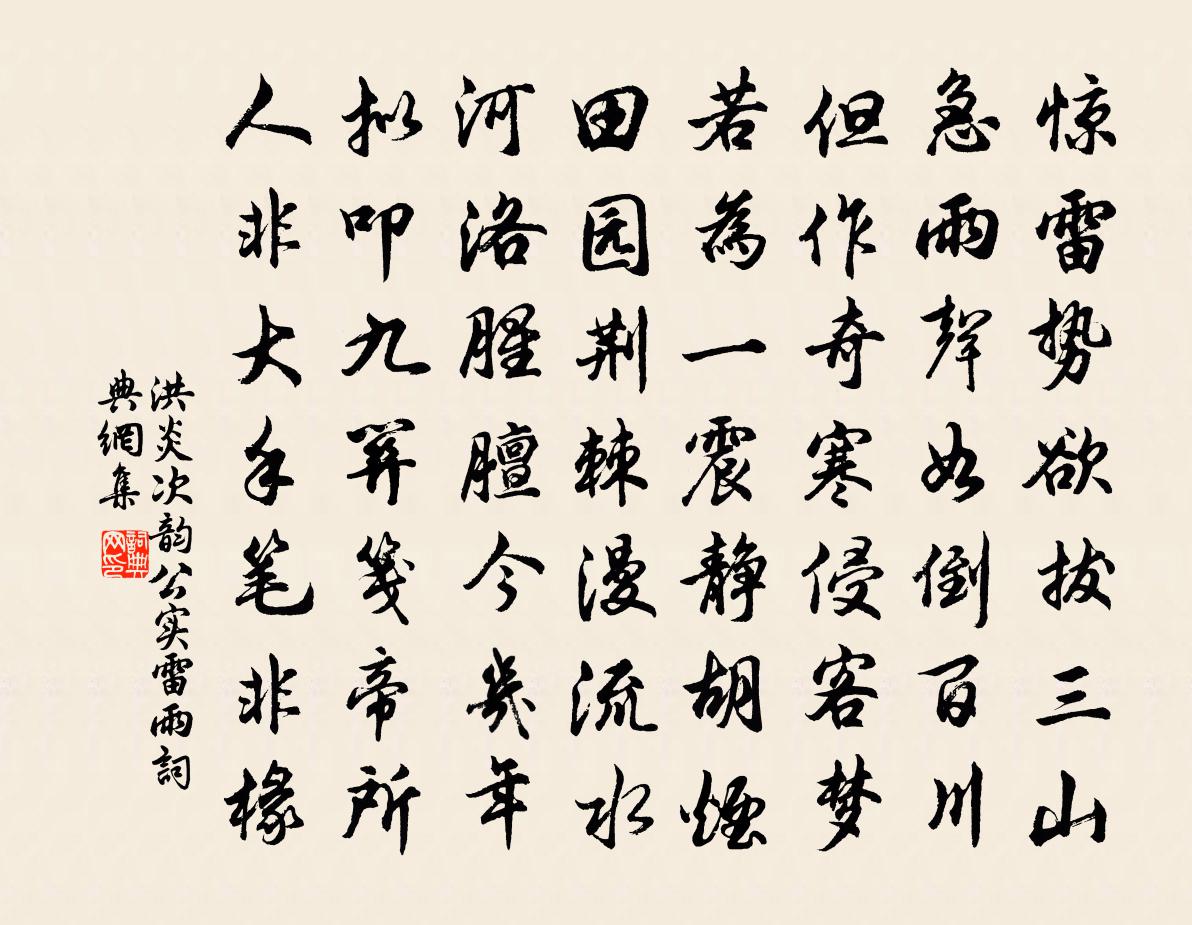 惊雷势欲拔三山
急雨聲如倒百川
但作奇寒侵客梦
若為一震静胡煙
田园荆棘漫流水
河洛腥膻今幾年
拟叩九关笺帝所
人非大手笔非椽
洪炎次韵公实雷雨詞
典網集
詞典网印